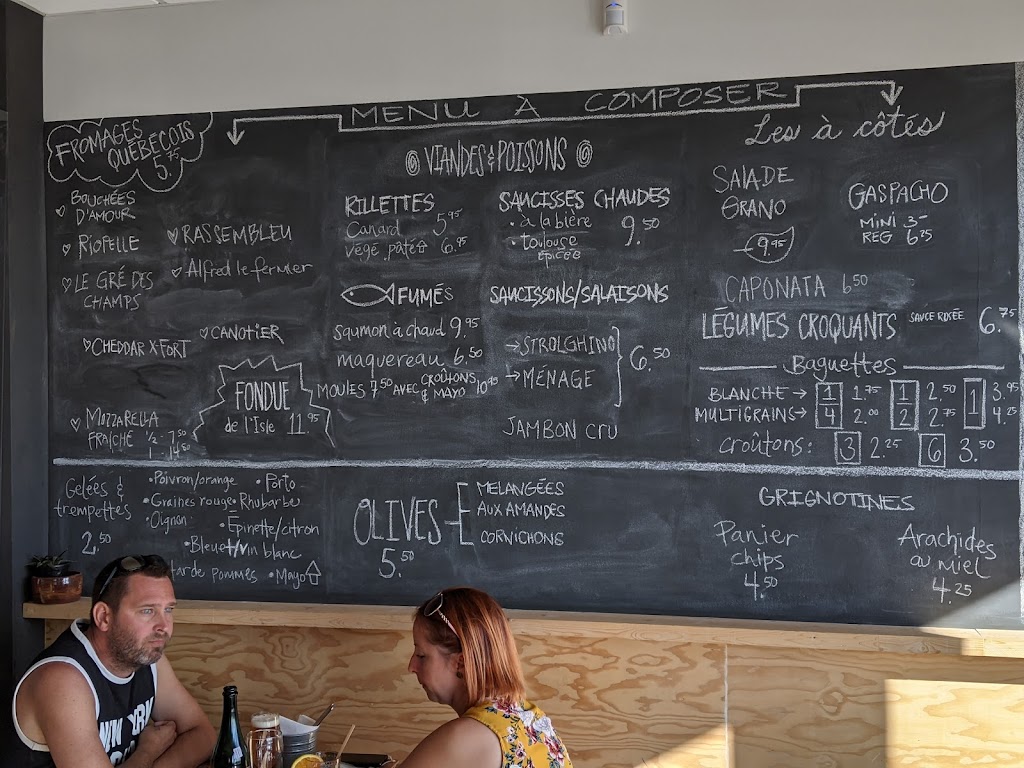 MENU À COMPOSER
FROMAGES
QUÉBÉCOIS
5.75
BOUCHÉES
D'AMOUR
RIOPELLE
RASSEMBLEU
LE GRÉ DES
CHAMPS
Alfred le fermier
CHEDDAR X-FORT
CANOTIER
FONDUE
de l'Isle 11.95
MOZZARELLA
FRAÎCHE 1/2 - 7.50
1 - 14.50
VIANDES & POISSONS
RILLETTES
Canard 5.95
végé paté 6.95
FUMÉS
saumon à chaud 9.95
maquereau 6.50
MOULES 7.50 AVEC CROÛTONS
& MAYO 10.90
SAUCISSES CHAUDES
• à la bière 9.50
• toulouse
épicée
SAUCISSONS/SALAISONS
→ STROLGHINO
→ MÉNAGE
6.50
JAMBON CRU
Les à côtés
SALADE
GRANO
9.95
GASPACHO
MINI 3-
REG 6.25
CAPONATA 6.50
LÉGUMES CROQUANTS SAUCE ROSÉE 6.75
Baguettes
BLANCHE → 1/4 1.75 1/2 2.50 1 3.95
MULTIGRAINS → 2.00 2.75 4.25
CROÛTONS: 3 2.25 6 3.50
Gelées &
trempettes
2.50
• Poivron/orange • Porto
• Graines rouge • Rhubarbe
• Oignon • Épinette/citron
• Bleuet/vin blanc
tarde pommes • Mayo
OLIVES
5.50
MELANGÉES
AUX AMANDES
CORNICHONS
GRIGNOTINES
Panier
chips
4.50
Arachides
au miel
4.25